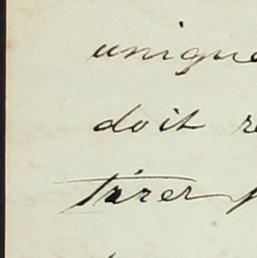 unique
doit re
tirer